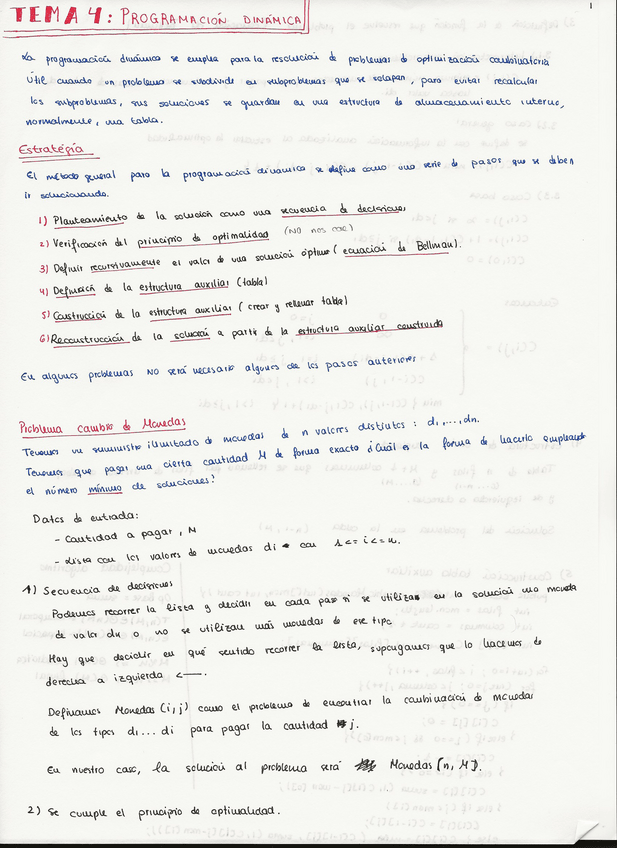 1
TEMA 4: PROGRAMACIÓN DINÁMICA
La programación dinámica se emplea para la resolución de problemas de optimización combinatoria
Útil cuando un problema se subdivide en subproblemas que se solapan, para evitar recalcular
los subproblemas, sus soluciones se guardan en una estructura de almacenamiento interno,
normalmente, una tabla.
Estrategia
El método general para la programación dinámica se define como una serie de pasos que se deben
ir solucionando.
1) Planteamiento de la solución como una secuencia de decisiones
2) Verificación del principio de optimalidad (NO NOS CAE)
3) Definir recursivamente el valor de una solución óptima (ecuación de Bellman).
4) Definición de la estructura auxiliar (tabla)
5) Construcción de la estructura auxiliar (crear y rellenar tabla)
6) Reconstrucción de la solución a partir de la estructura auxiliar construida
En algunos problemas NO será necesario algunos de los pasos anteriores
Problema cambio de Monedas
Tenemos un suministro ilimitado de monedas de n valores distintos: d1,...,dn.
Tenemos que pagar una cierta cantidad M de forma exacta ¿Cuál es la forma de hacerlo empleando
el número mínimo de soluciones?
Datos de entrada:
- Cantidad a pagar, M
- Lista con los valores de monedas di con 1<=i<=n.
1) Secuencia de decisiones
Podemos recorrer la lista y decidir en cada paso si se utiliza en la solución una moneda
de valor dn o no se utilizan más monedas de ese tipo
Hay que decidir en qué sentido recorrer la lista, supongamos que lo hacemos de
derecha a izquierda <—.
Definamos Monedas (i,j) como el problema de encontrar la combinación de monedas
de los tipos d1...di para pagar la cantidad j.
En nuestro caso, la solución al problema será Monedas (n, M).
2) Se cumple el principio de optimalidad.